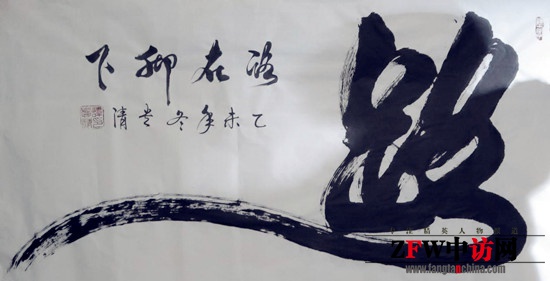 路
路在脚下
乙未年冬贵清
精英人物
ZFW中访网
www.fangtanchina.com